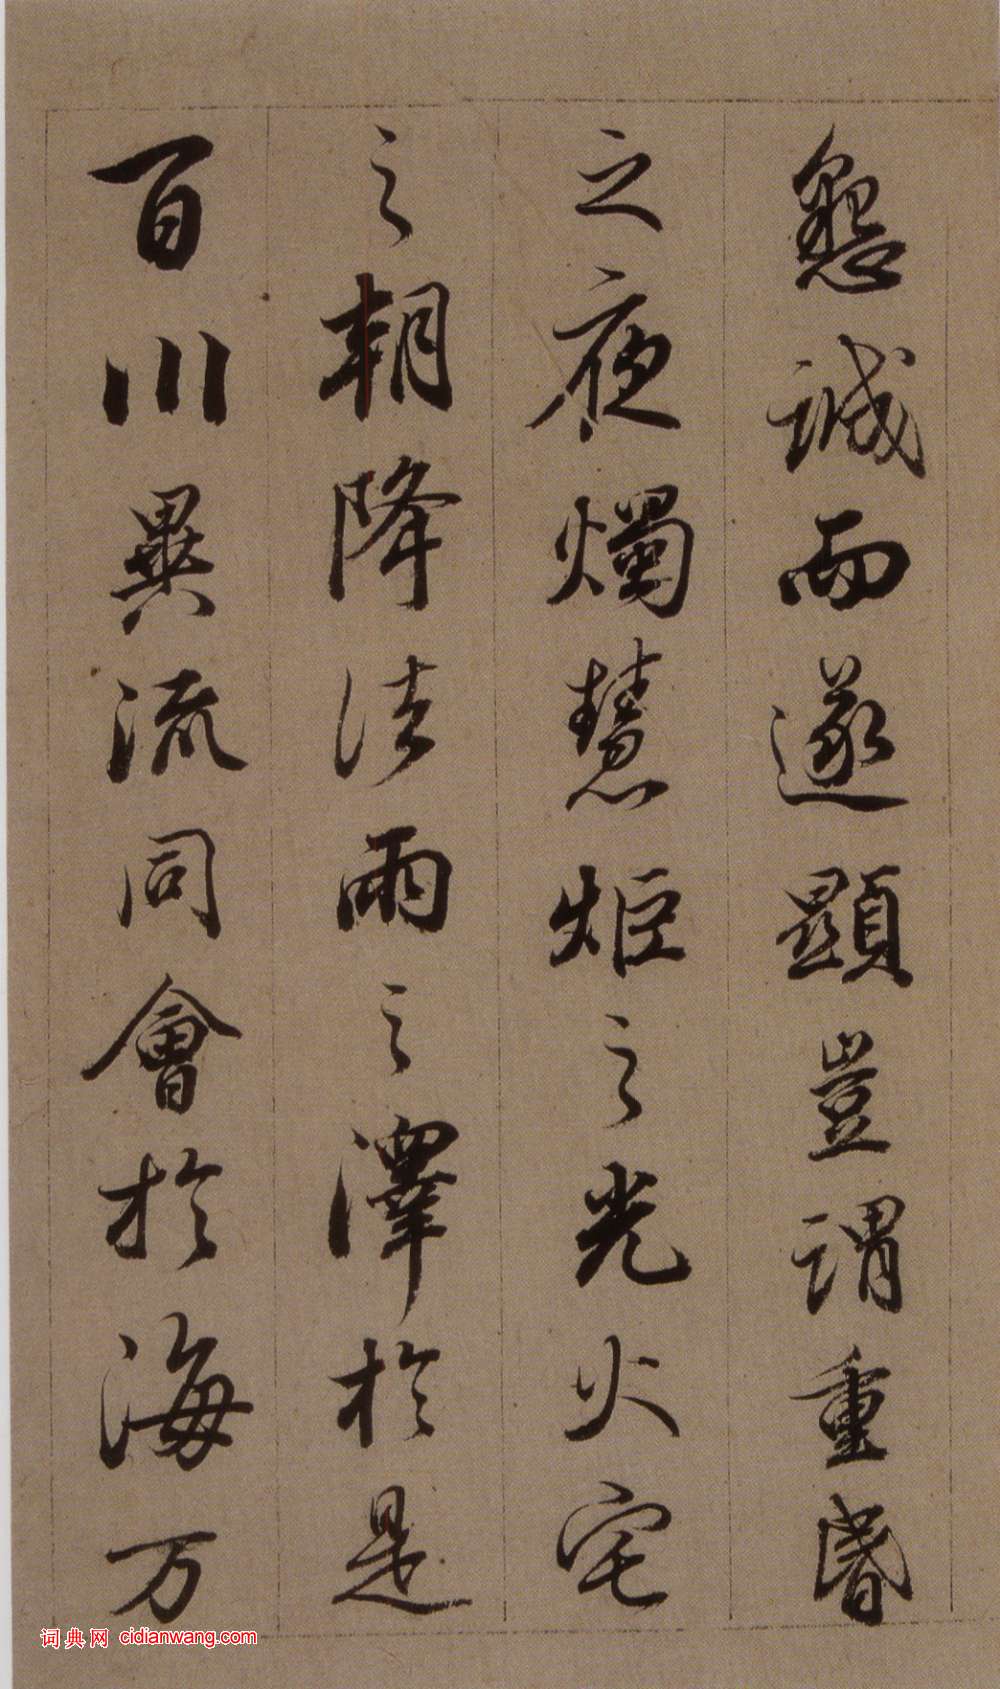 懇誠而遂顯豈謂重昏
之夜燭慧炬之光火宅
之朝降法雨之澤於是
百川異流同會於海万
词典网 cidianwang.com